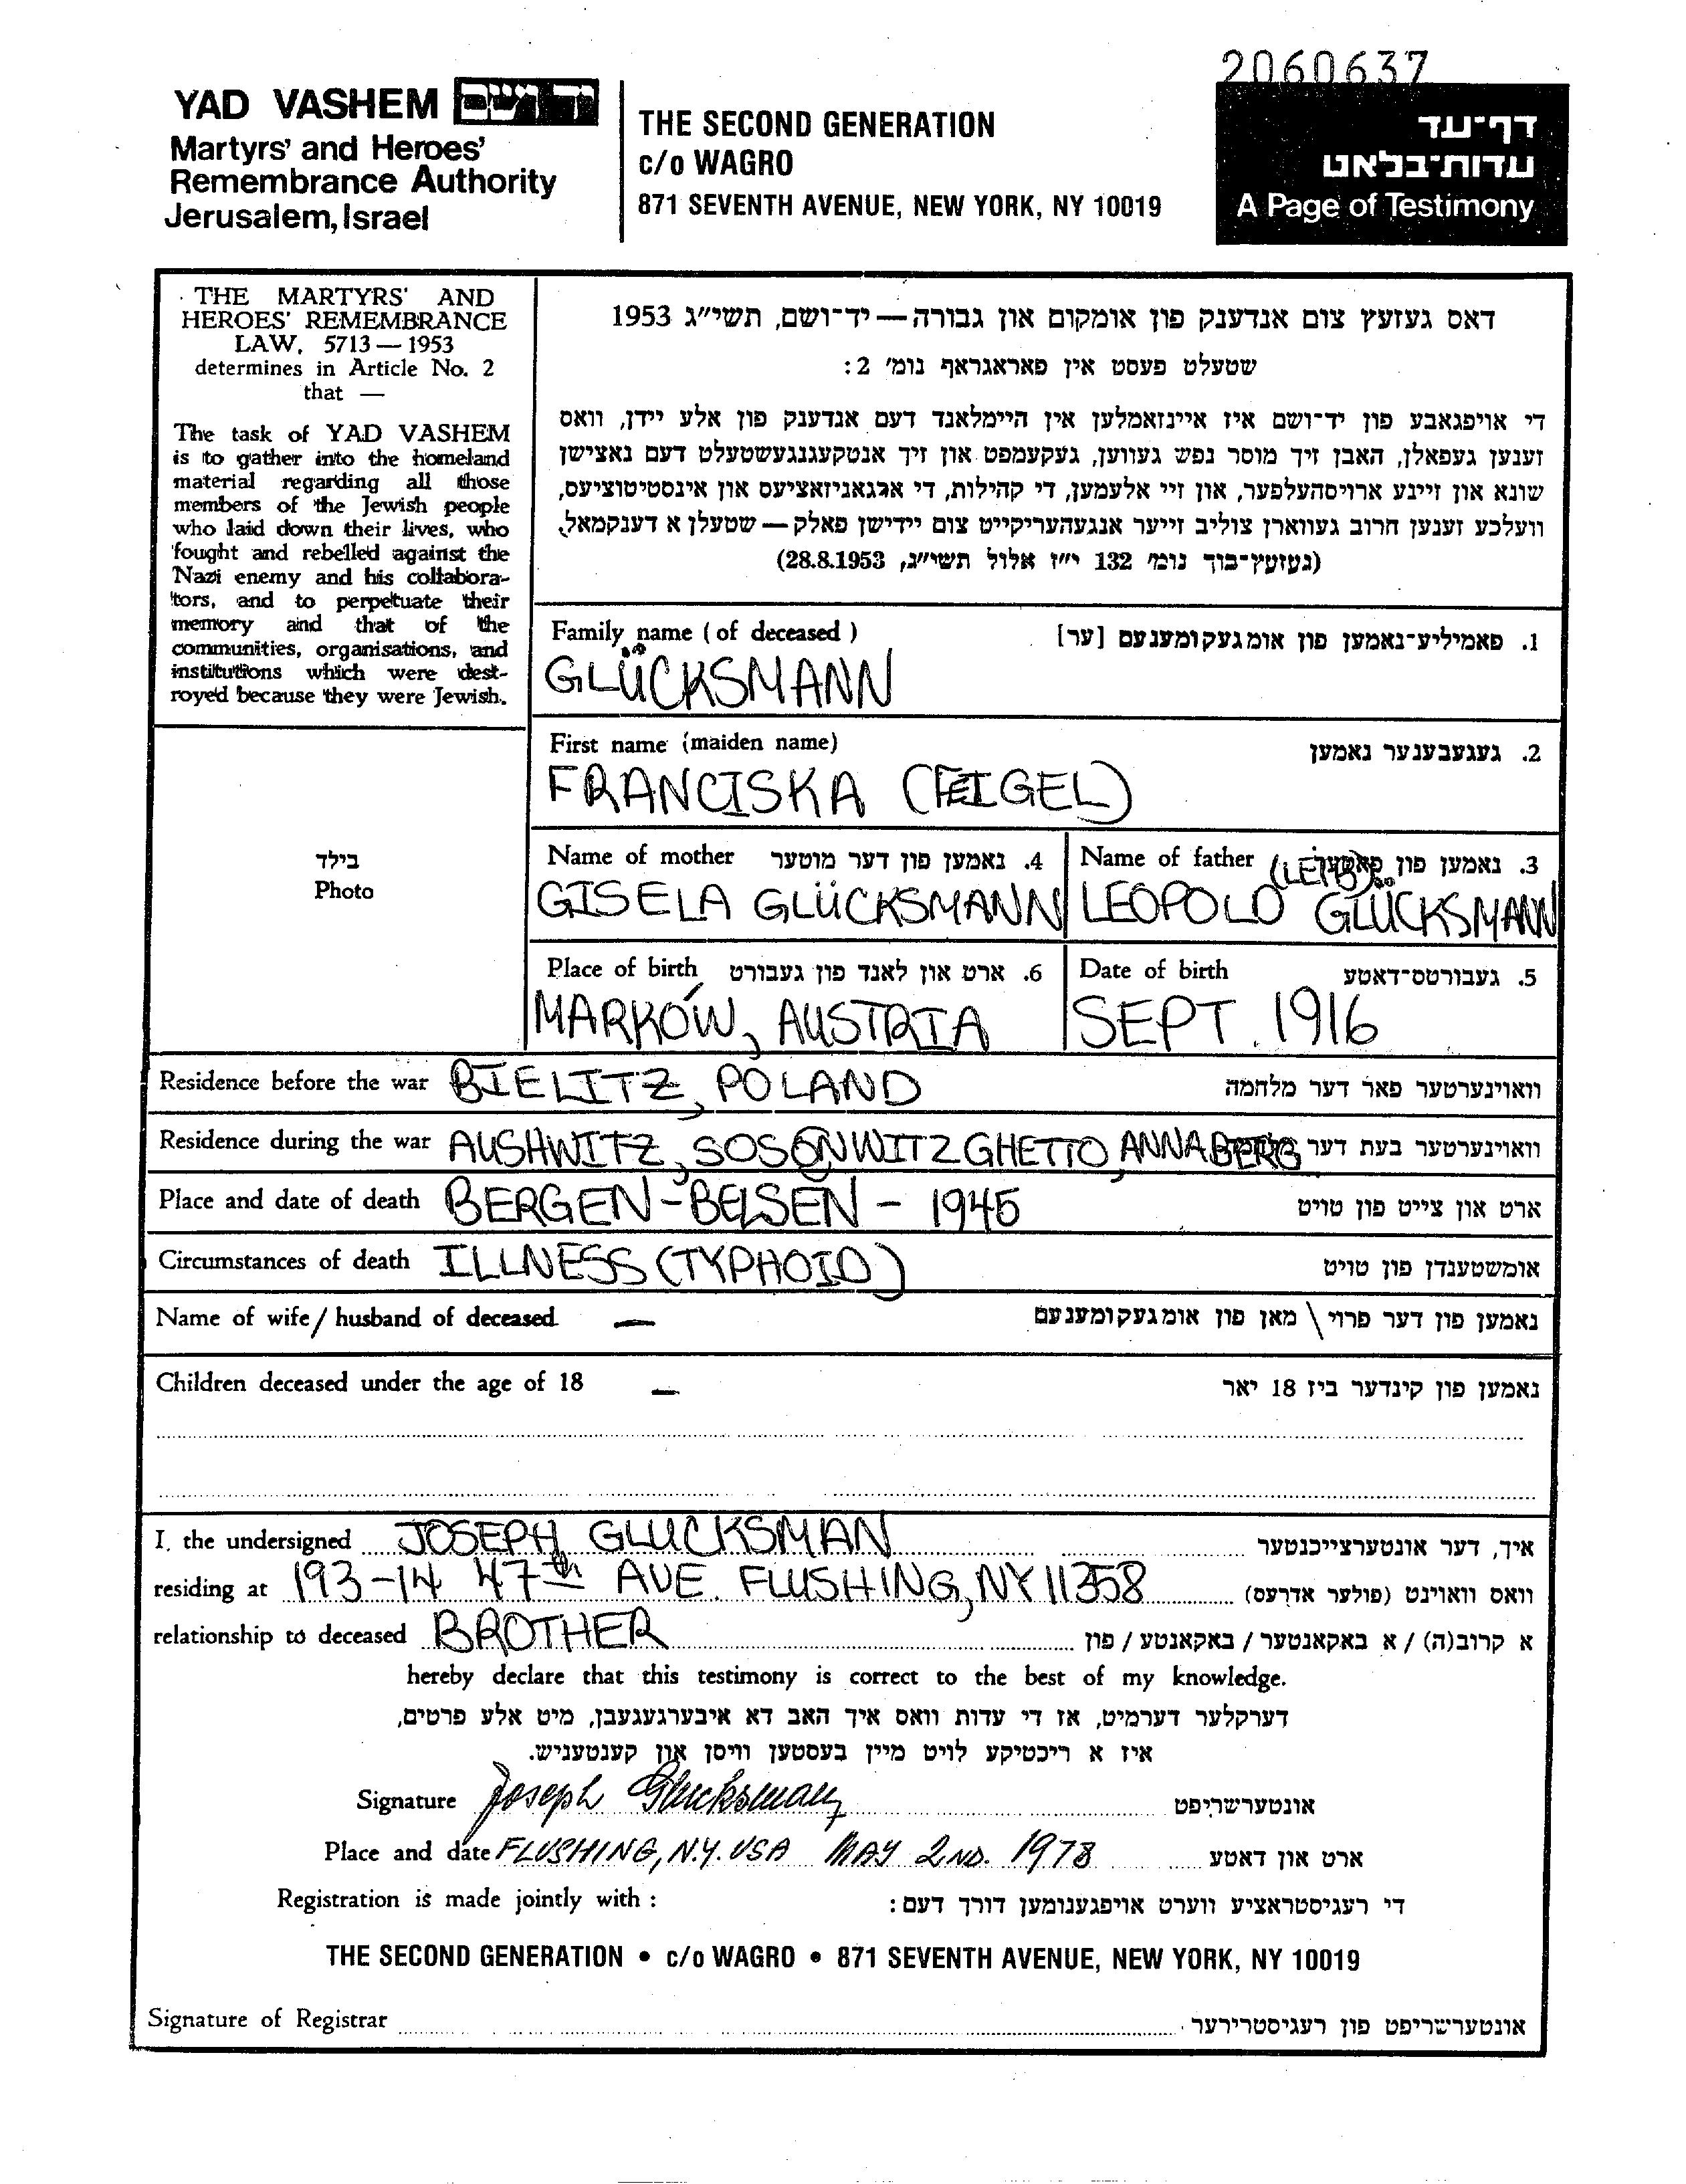 2060637
YAD VASHEM יד ושם
Martyrs' and Heroes'
Remembrance Authority
Jerusalem, Israel
THE SECOND GENERATION
c/o WAGRO
871 SEVENTH AVENUE, NEW YORK, NY 10019
דף־עד
עדות־בלאט
A Page of Testimony
THE MARTYRS' AND
HEROES' REMEMBRANCE
LAW, 5713 — 1953
determines in Article No. 2
that —
The task of YAD VASHEM
is to gather into the homeland
material regarding all those
members of the Jewish people
who laid down their lives, who
fought and rebelled against the
Nazi enemy and his collabora-
tors, and to perpetuate their
memory and that of the
communities, organisations, and
institutions which were dest-
royed because they were Jewish.
דאס געזעץ צום אנדענק פון אומקום און גבורה — יד־ושם, תשי״ג 1953
שטעלט פעסט אין פאראגראף נומ׳ 2:
די אויפגאבע פון יד־ושם איז איינזאמלען אין היימלאנד דעם אנדענק פון אלע יידן, וואס
זענען געפאלן, האבן זיך מוסר נפש געווען, געקעמפט און זיך אנטקעגנגעשטעלט דעם נאצישן
שונא און זיינע ארויסהעלפער, און זיי אלעמען, די קהילות, די ארגאניזאציעס און אינסטיטוציעס,
וועלכע זענען חרוב געווארן צוליב זייער אנגעהעריקייט צום יידישן פאלק — שטעלן א דענקמאל.
(געזעץ־בוך נומ׳ 132 י״ז אלול תשי״ג, 28.8.1953)
Family name (of deceased) 1. פאמיליע־נאמען פון אומגעקומענעם [ער]
GLÜCKSMANN
First name (maiden name) 2. געגעבענער נאמען
FRANCISKA (FEIGEL)
בילד
Photo
Name of mother 4. נאמען פון דער מוטער
GISELA GLÜCKSMANN
Name of father 3. נאמען פון פאטער
(LEIB)
LEOPOLD GLÜCKSMANN
Place of birth 6. ארט און לאנד פון געבורט
MARKÓW, AUSTRIA
Date of birth 5. געבורטס־דאטע
SEPT. 1916
Residence before the war BIELITZ, POLAND וואוינערטער פאר דער מלחמה
Residence during the war AUSHWITZ, SOSONWITZ GHETTO, ANNABERG וואוינערטער בעת דער
Place and date of death BERGEN-BELSEN - 1945 ארט און צייט פון טויט
Circumstances of death ILLNESS (TYPHOID) אומשטענדן פון טויט
Name of wife / husband of deceased — נאמען פון דער פרוי \ מאן פון אומגעקומענעם
Children deceased under the age of 18 — נאמען פון קינדער ביז 18 יאר
I, the undersigned JOSEPH GLUCKSMAN איך, דער אונטערצייכנטער
residing at 193-14 47th AVE. FLUSHING, NY 11358 וואס וואוינט (פולער אדרעס)
relationship to deceased BROTHER א קרוב(ה) / א באקאנטער / באקאנטע / פון
hereby declare that this testimony is correct to the best of my knowledge.
דערקלער דערמיט, אז די עדות וואס איך האב דא איבערגעגעבן, מיט אלע פרטים,
איז א ריכטיקע לויט מיין בעסטען וויסן און קענטעניש.
Signature Joseph Glucksman אונטערשריפט
Place and date FLUSHING, N.Y. USA MAY 2ND. 1978 ארט און דאטע
Registration is made jointly with : די רעגיסטראציע ווערט אויפגענומען דורך דעם :
THE SECOND GENERATION • c/o WAGRO • 871 SEVENTH AVENUE, NEW YORK, NY 10019
Signature of Registrar אונטערשריפט פון רעגיסטרירער